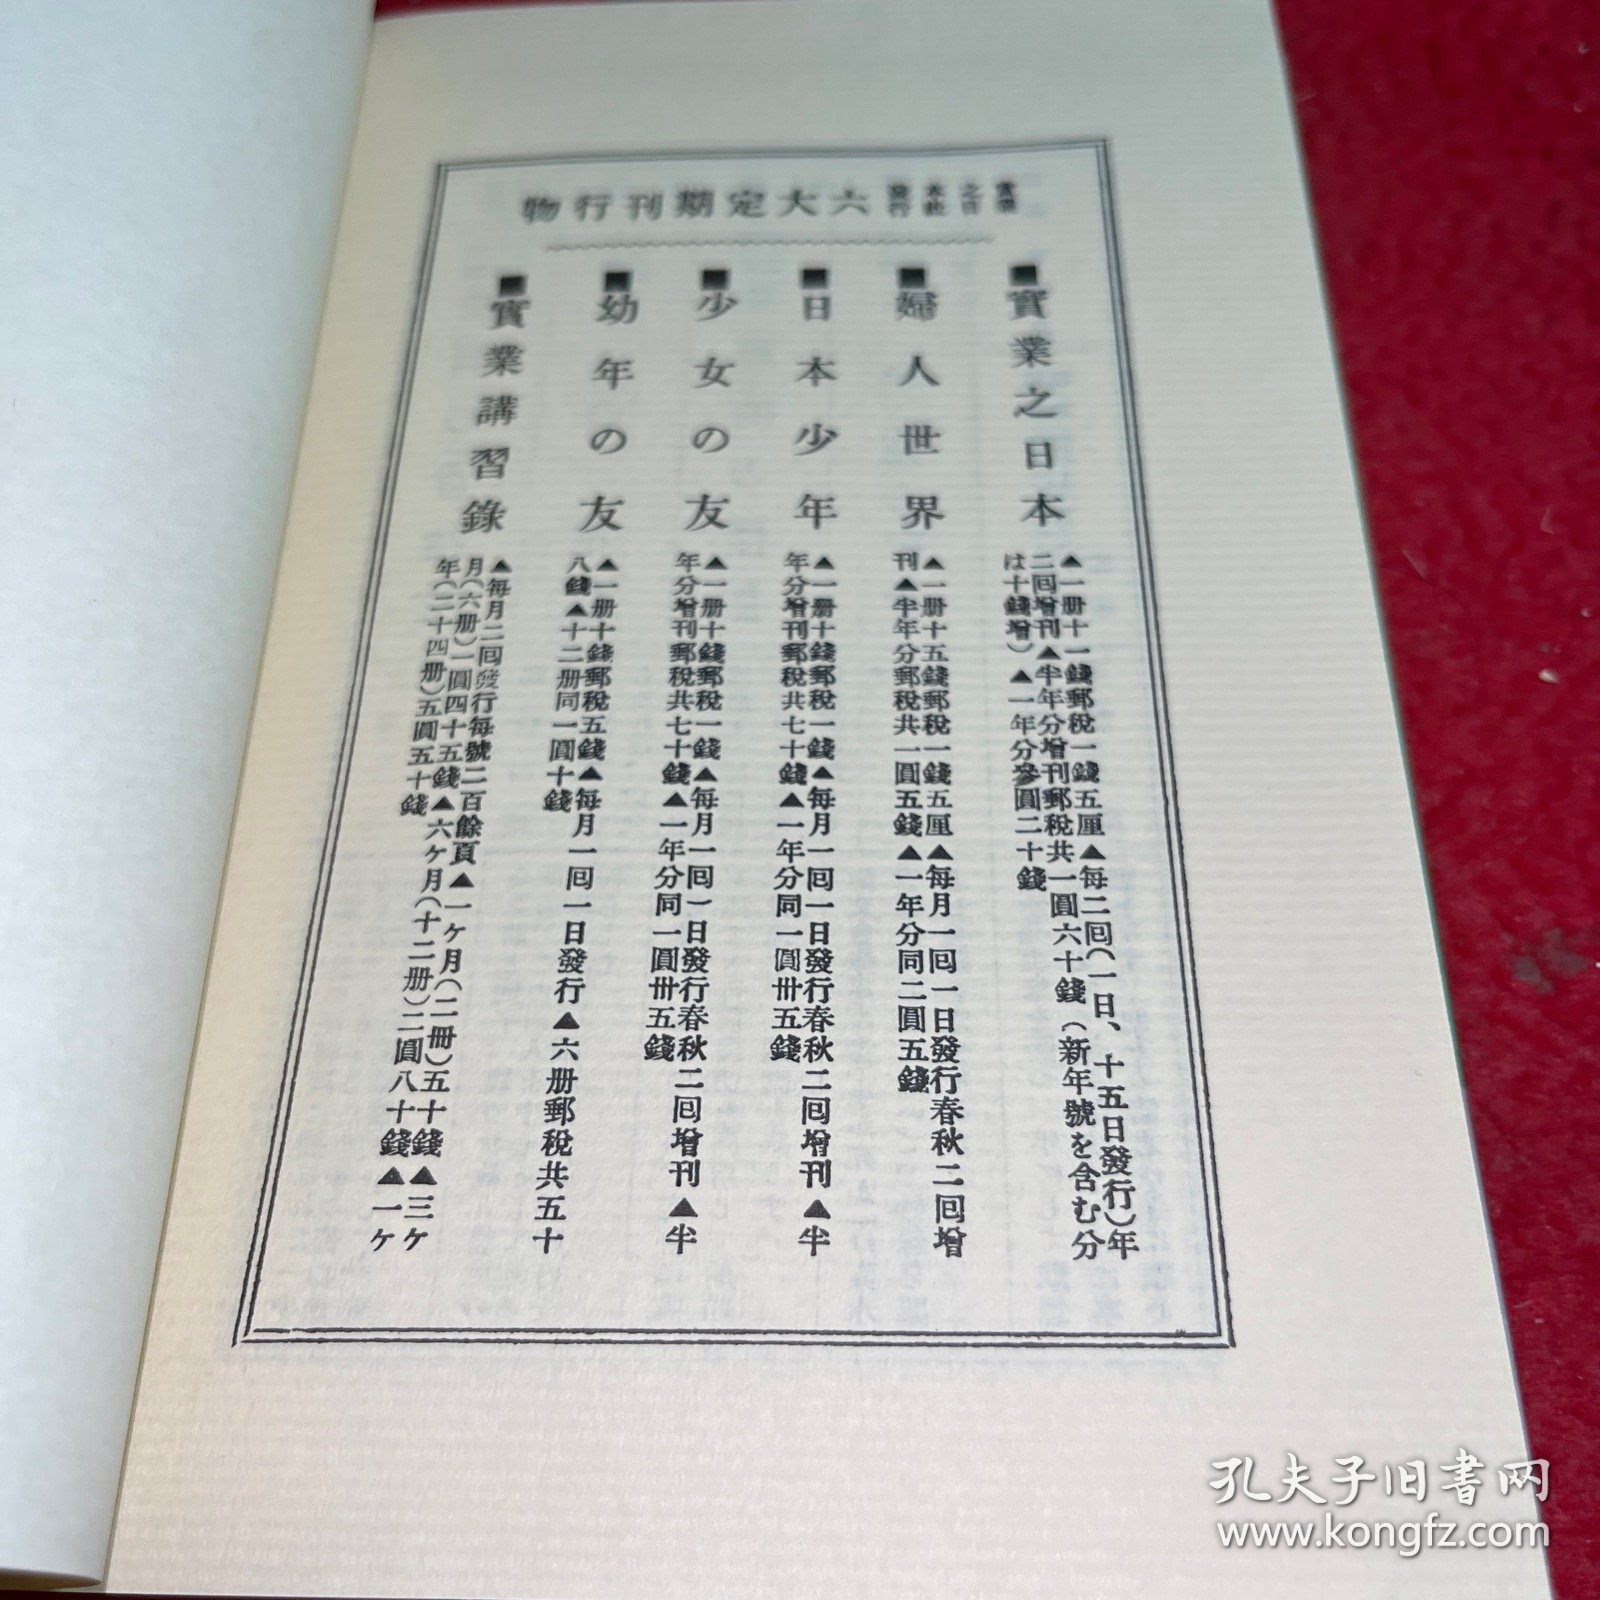 實業之日本社發行 六大定期刊行物
■實業之日本
▲一册十一錢郵税一錢五厘▲每二囘(一日、十五日發行)年
二囘增刊▲半年分增刊郵税共一圓六十錢(新年號を含む分
は十錢增)▲一年分參圓二十錢
■婦人世界
▲一册十五錢郵税一錢五厘▲每月一囘一日發行春秋二囘增
刊▲半年分郵税共一圓五錢▲一年分同二圓五錢
■日本少年
▲一册十錢郵税一錢▲每月一囘一日發行春秋二囘增刊▲半
年分增刊郵税共七十錢▲一年分同一圓卅五錢
■少女の友
▲一册十錢郵税一錢▲每月一囘一日發行春秋二囘增刊▲半
年分增刊郵税共七十錢▲一年分同一圓卅五錢
■幼年の友
▲一册十錢郵税五錢▲每月一囘一日發行▲六册郵税共五十
八錢▲十二册同一圓十錢
■實業講習錄
▲每月二囘發行每號二百餘頁▲一ケ月(二冊)五十錢▲三ケ
月(六册)一圓四十五錢▲六ケ月(十二册)二圓八十錢▲一ケ
年(二十四册)五圓五十錢
孔夫子旧书网
www.kongfz.com